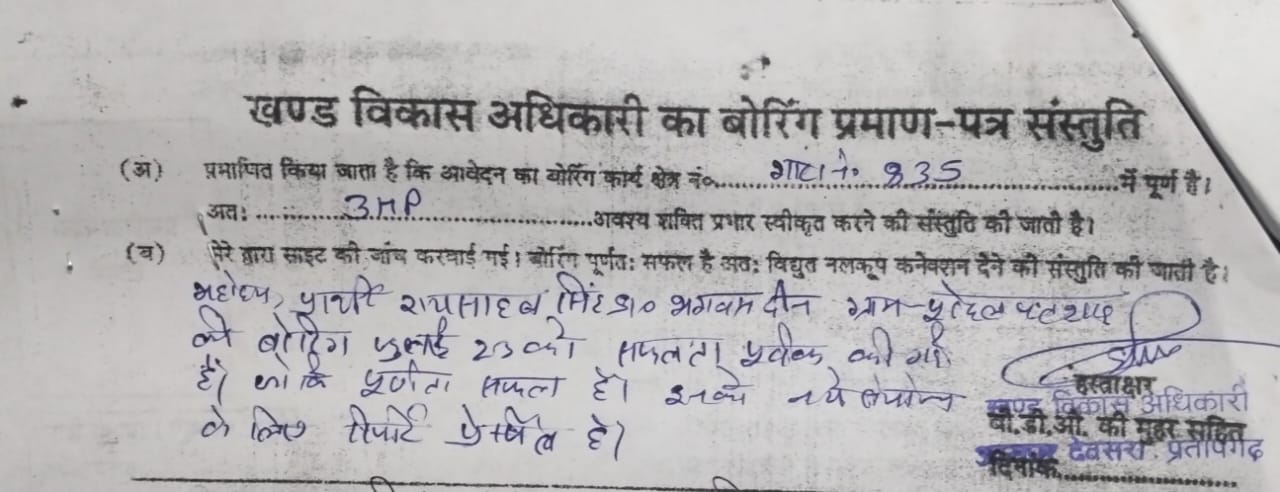 खण्ड विकास अधिकारी का बोरिंग प्रमाण-पत्र संस्तुति
(अ) प्रमाणित किया जाता है कि आवेदन का बोरिंग कार्य क्षेत्र नं०..... गाटा नं० 835 .....में पूर्ण है।
अतः ..... 3HP .....अवश्य शक्ति प्रभार स्वीकृत करने की संस्तुति की जाती है।
(ब) मेरे द्वारा साइट की जांच करवाई गई। बोरिंग पूर्णतः सफल है अतः विद्युत नलकूप कनेक्शन देने की संस्तुति की जाती है।
महोदय, प्रार्थी रायसाहब सिंह S/o भगवानदीन ग्राम-
की बोरिंग जुलाई 23 को सफलता पूर्वक की गई
है। जो कि पूर्णता सफल है। इनके नये संयोजन
के लिए रिपोर्ट प्रेषित है।
हस्ताक्षर
खण्ड विकास अधिकारी
बी.डी.ओ. की मुहर सहित
देवसरा, प्रतापगढ़
दिनांक.....